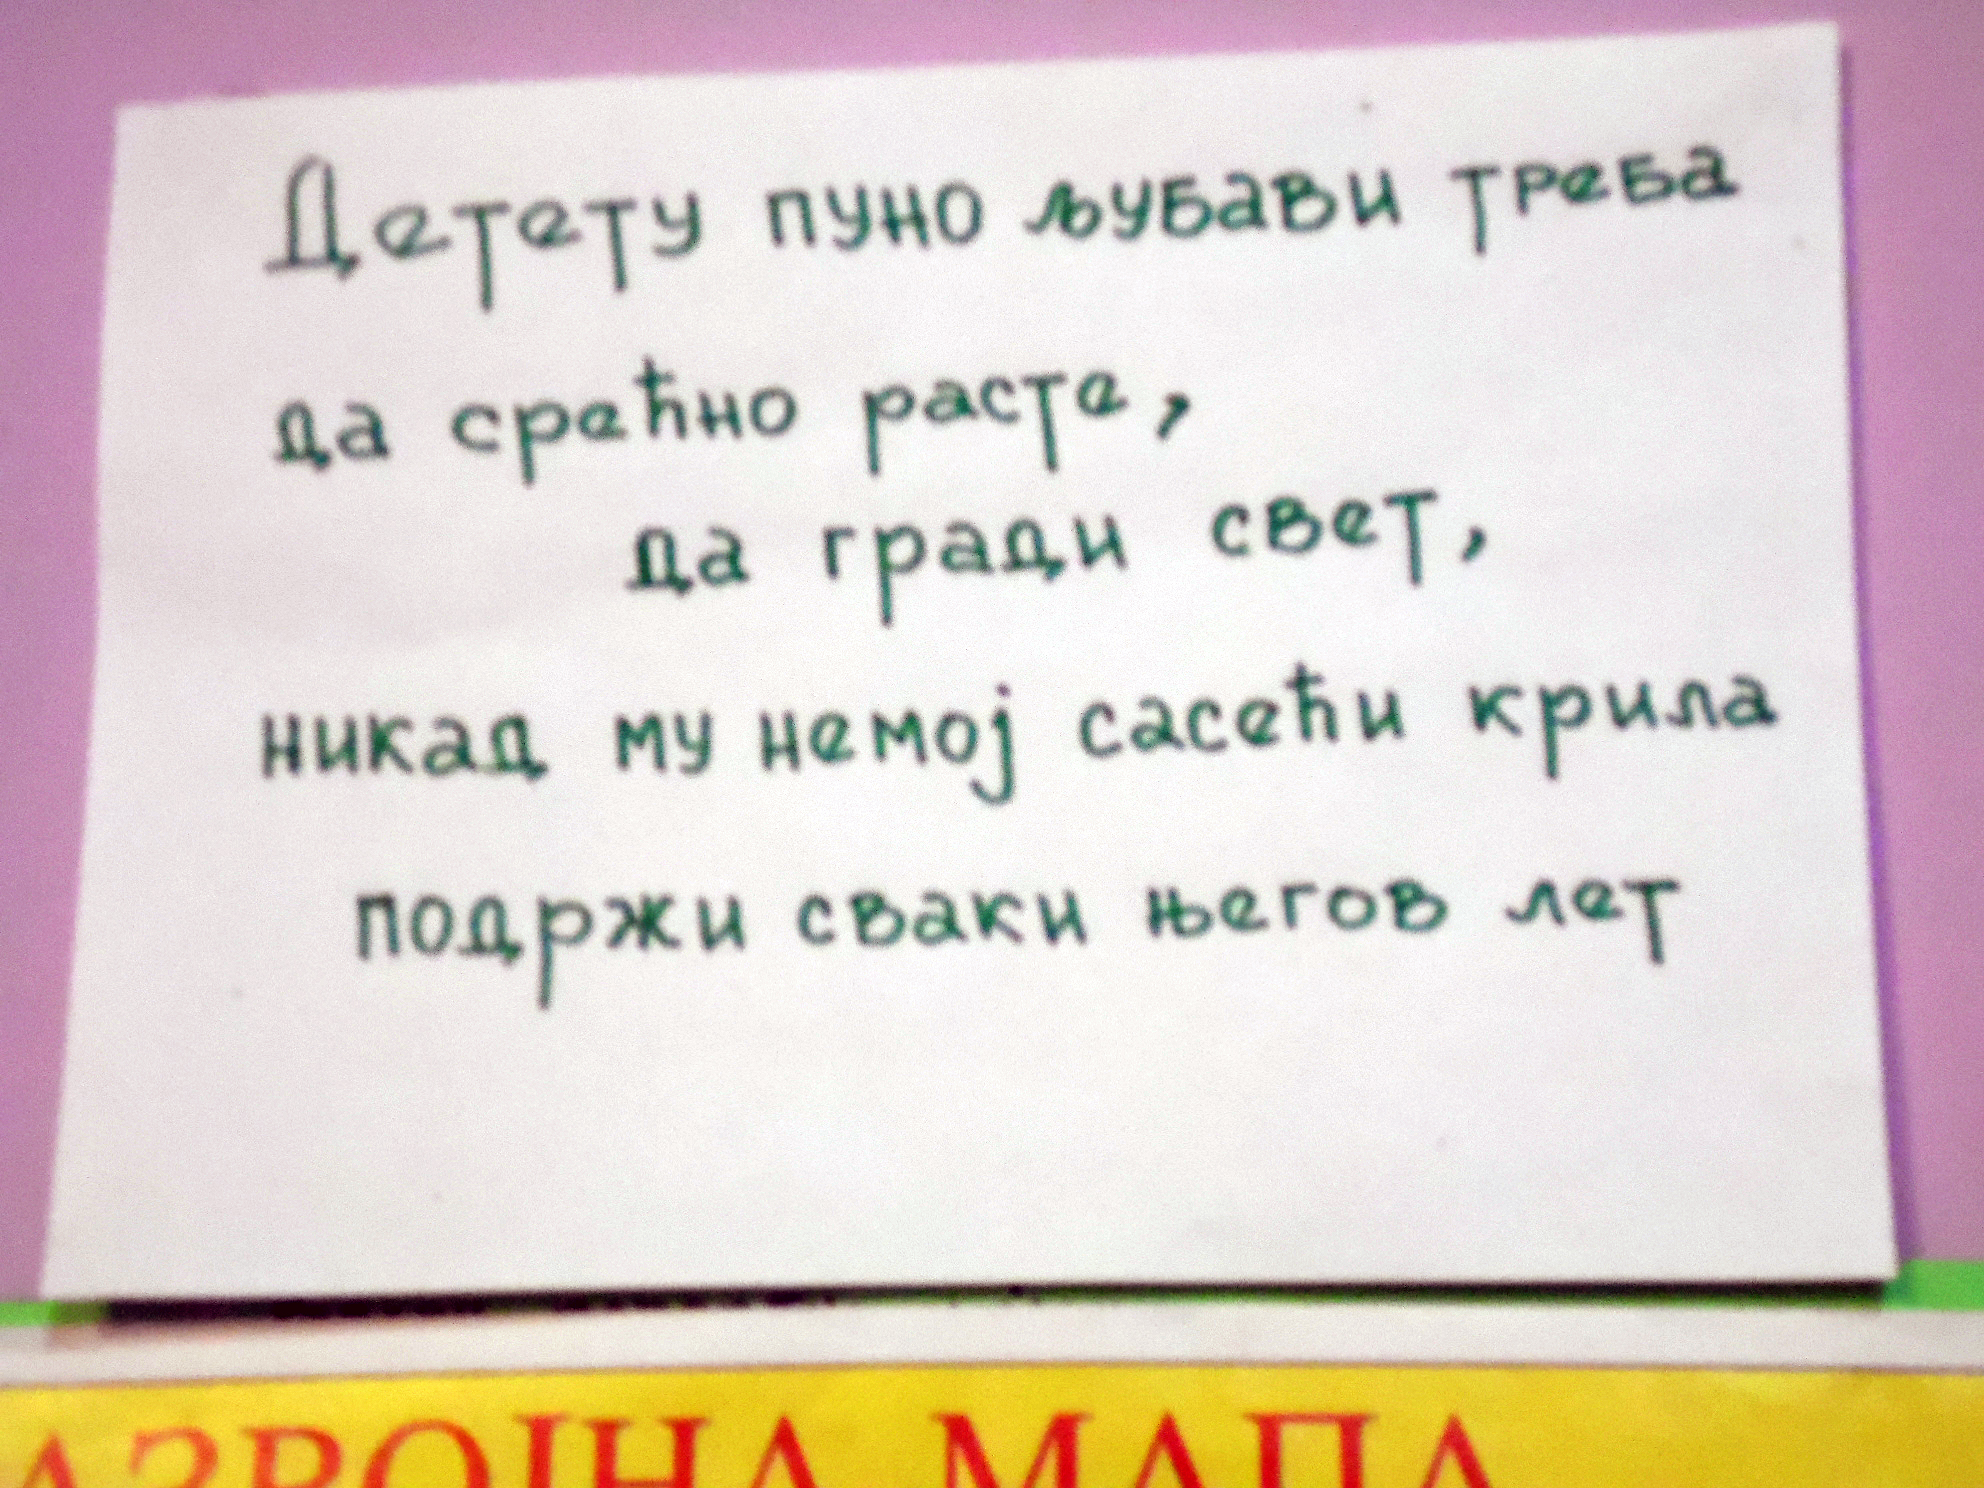 Детету пуно љубави треба
да срећно расте,
да гради свет,
никад му немој сасећи крила
подржи сваки његов лет
АЗВОЈНА МАПА